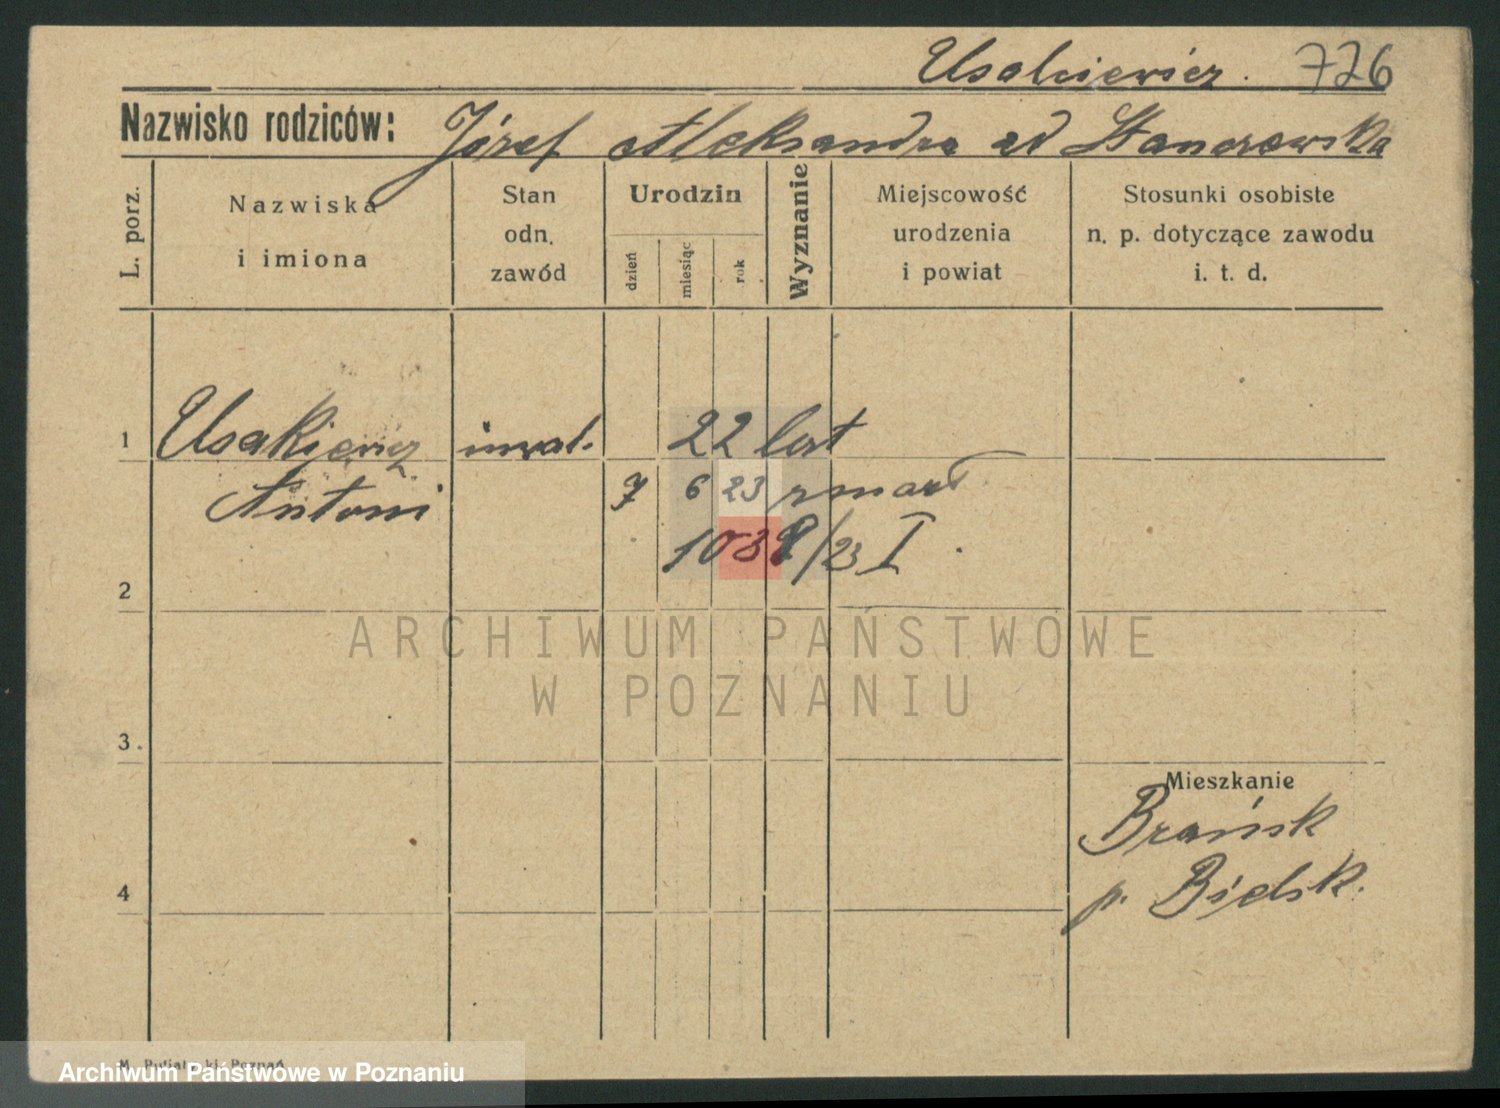 Usakiewicz. 726
Nazwisko rodziców: Józef Aleksandra zd
L. porz.
Nazwiska
i imiona
Stan
odn.
zawód
Urodzin
dzień
miesiąc
rok
Wyznanie
Miejscowość
urodzenia
i powiat
Stosunki osobiste
n. p. dotyczące zawodu
i. t. d.
1 Usakiewicz inwal. 22 lat
Antoni 7 6 23 zmarł
1038/23 I.
2
ARCHIWUM PAŃSTWOWE
W POZNANIU
3.
Mieszkanie
Brańsk
4 p. Bielsk.
Poznań
Archiwum Państwowe w Poznaniu